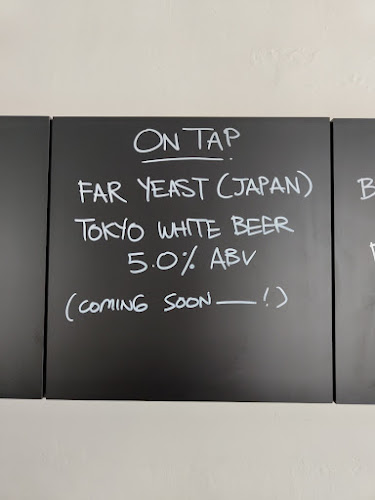 ON TAP
FAR YEAST (JAPAN)
TOKYO WHITE BEER
5.0% ABV
(COMING SOON—!)